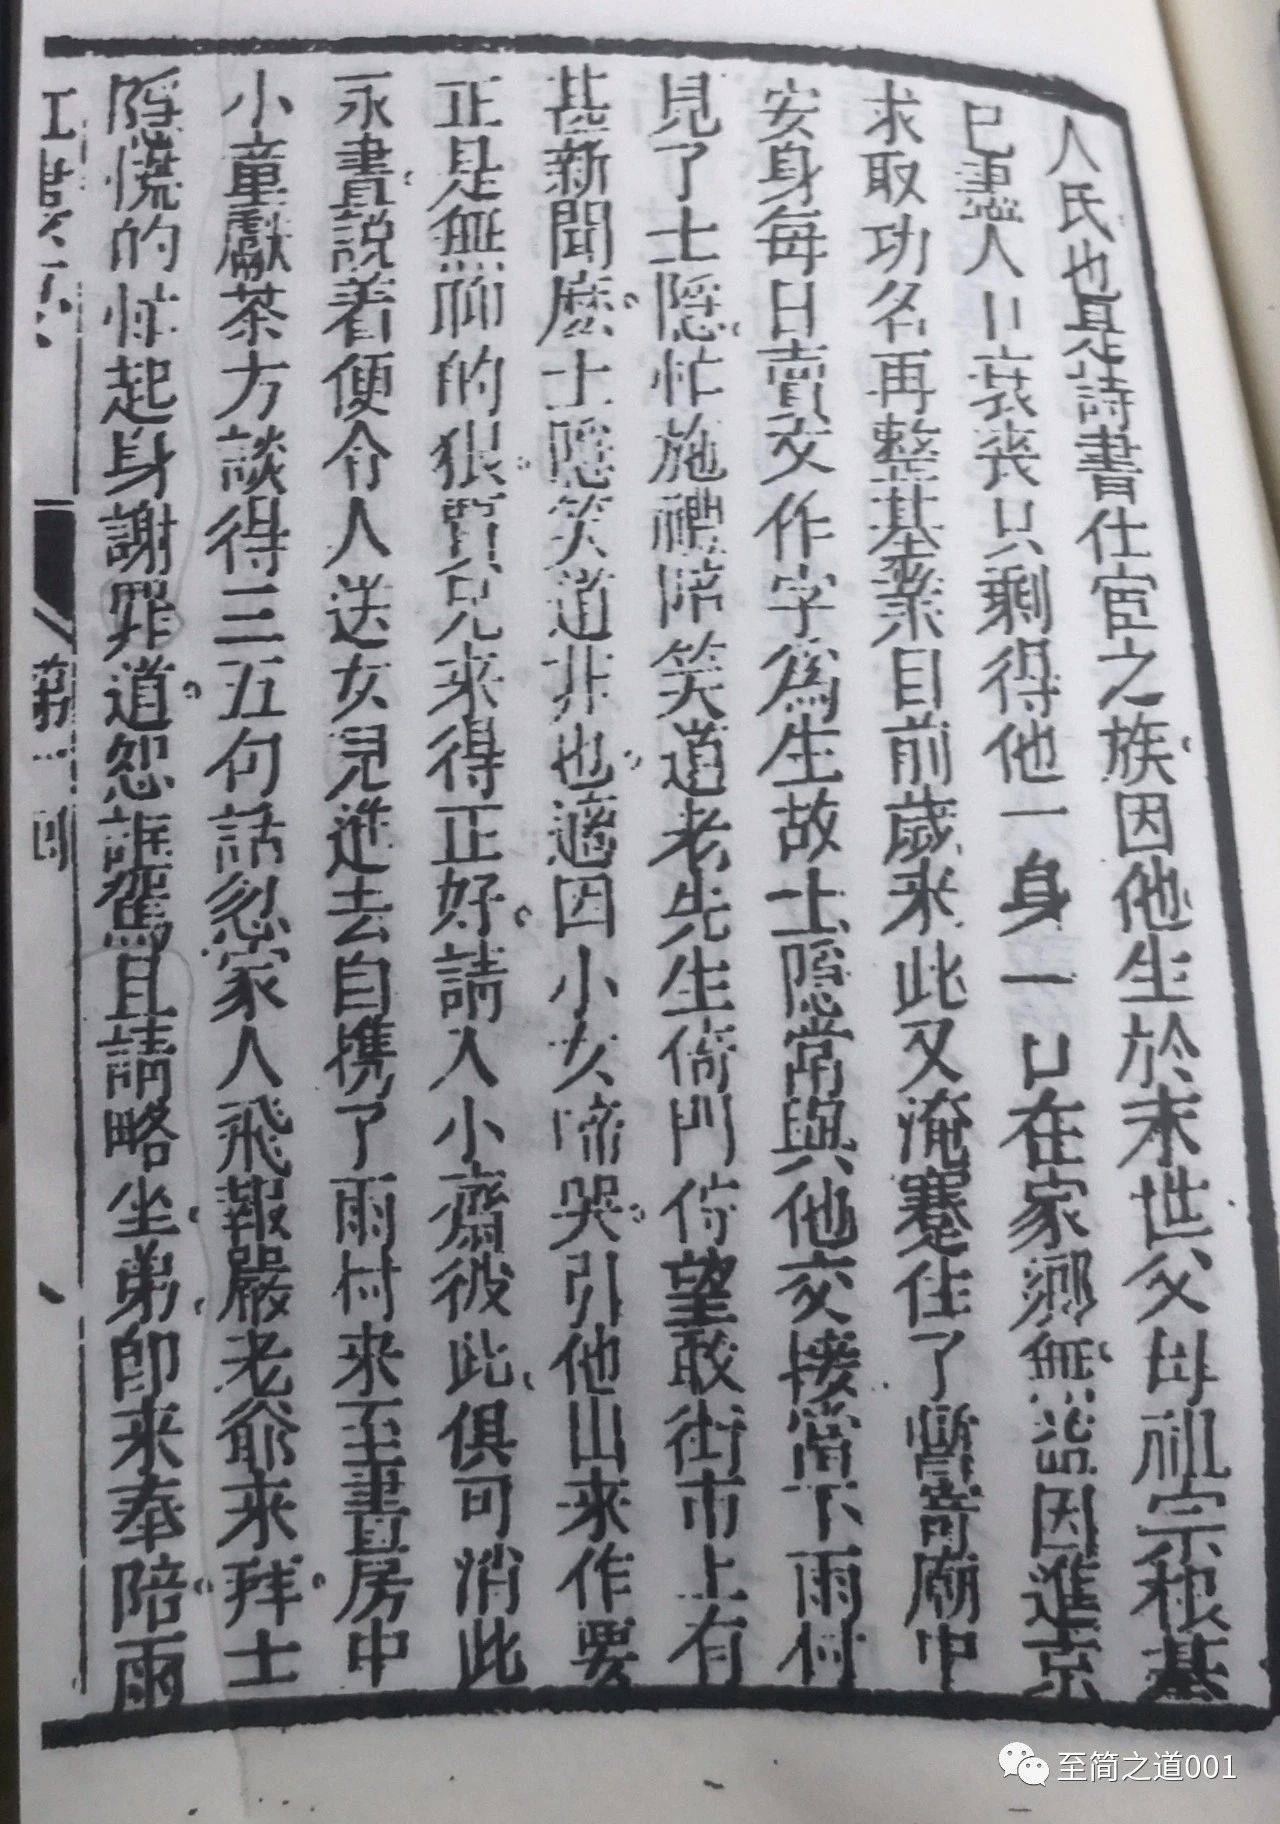 人氏也是詩書仕宦之族因他生於末世父母祖宗根基
已盡人口衰喪只剩得他一身一口在家鄉無益因進京
求取功名再整基業自前歲來此又淹蹇住了暫寄廟中
安身每日賣文作字爲生故士隱常與他交接當下雨村
見了士隱忙施禮陪笑道老先生倚門佇望敢街市上有
甚新聞麽士隱笑道非也適因小女啼哭引他出來作耍
正是無聊的狠賈兄來得正好請入小齋彼此俱可消此
永晝說着便令人送女兒進去自携了雨村來至書房中
小童獻茶方談得三五句話忽家人飛報嚴老爺來拜士
隱慌的忙起身謝罪道恕誑駕且請略坐弟即來奉陪雨
第一回
至简之道001